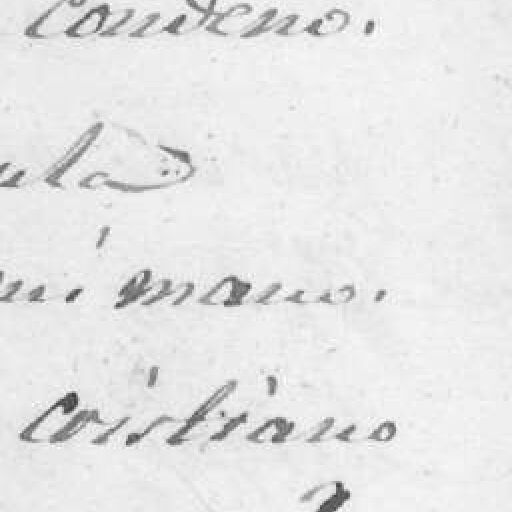 condeno.
ula
mi mano.
cristiano